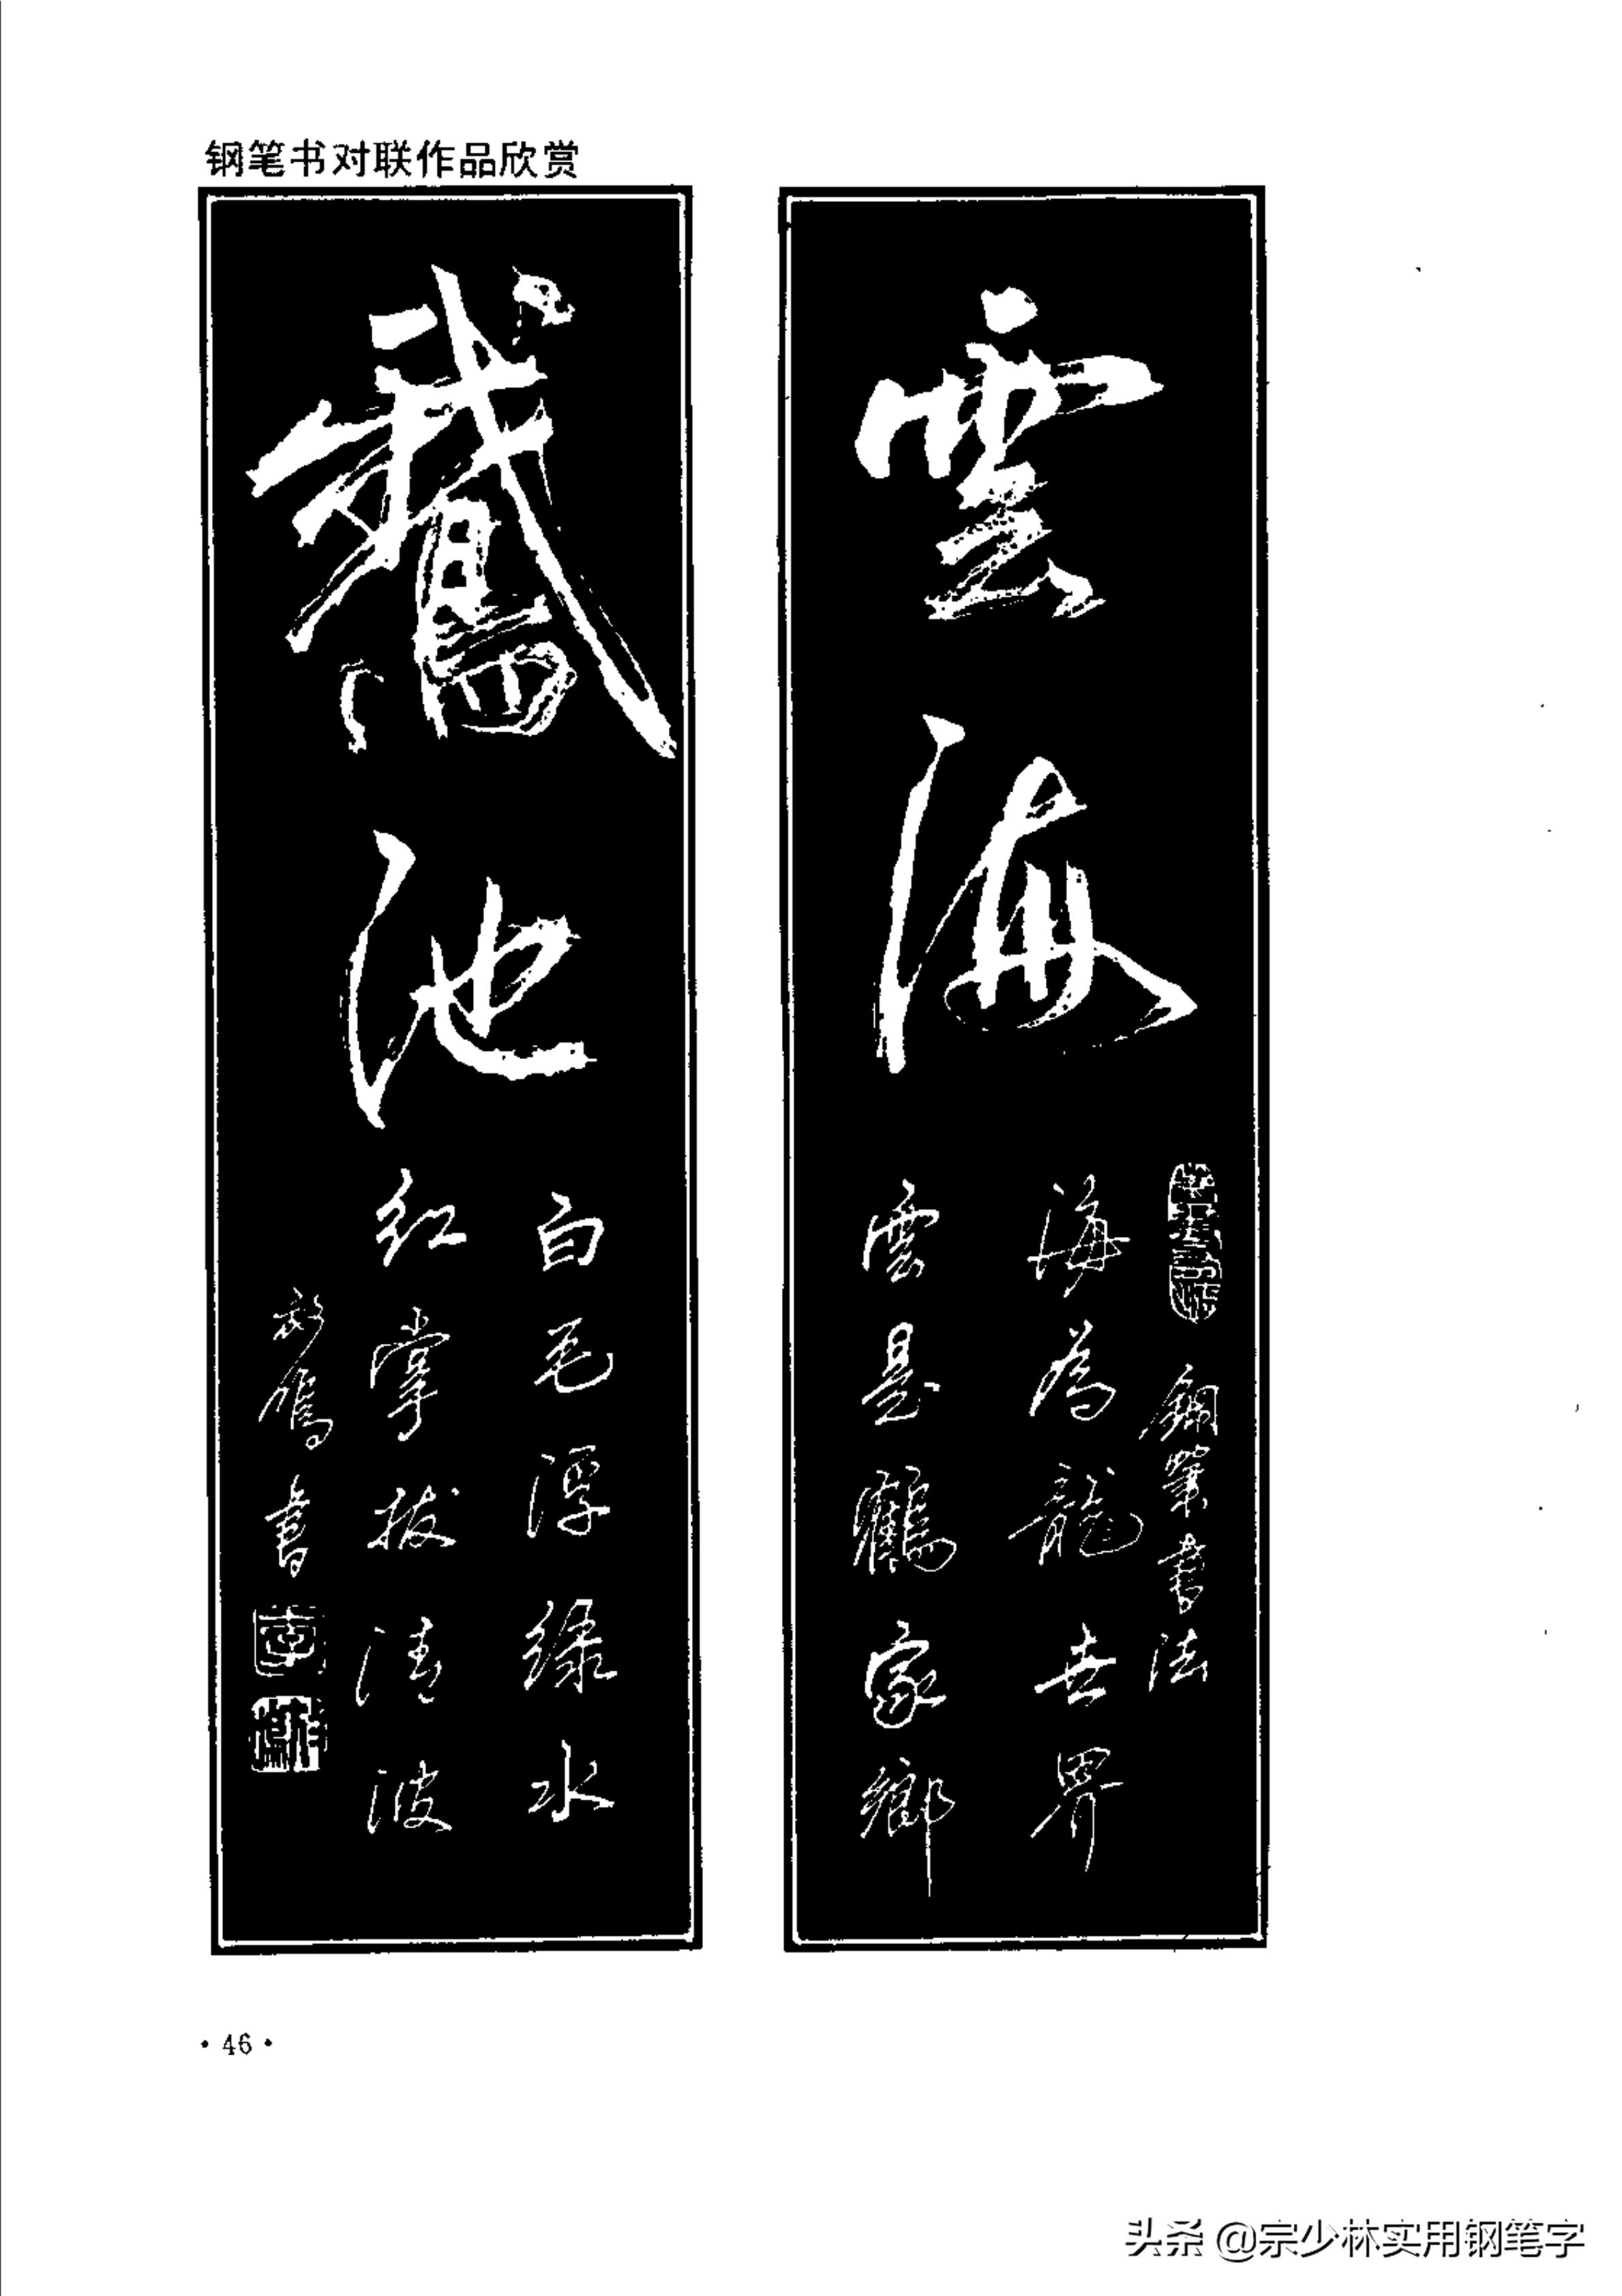 钢笔书对联作品欣赏
雲海
海為龍世界
雲是鶴家鄉
鋼筆书法
鵞池
白毛浮绿水
红掌拨清波
书
·46·
头条 @宗少林实用钢笔字